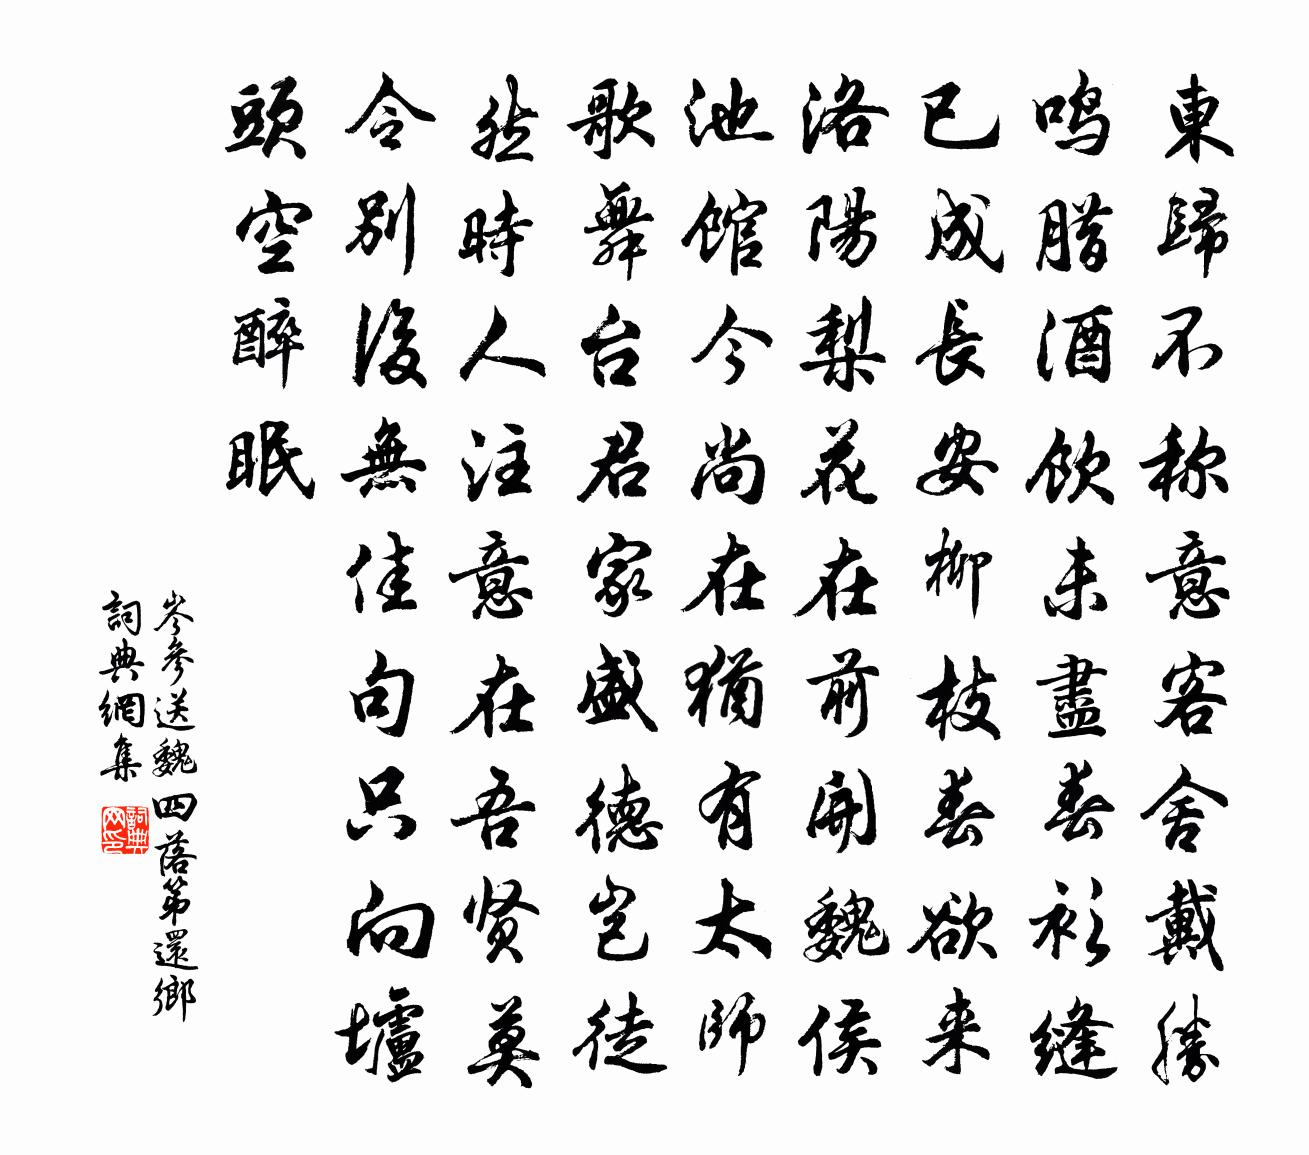 東歸不称意客舍戴勝
鸣腊酒飲未盡春衫縫
已成長安柳枝春欲来
洛陽梨花在前開魏侯
池馆今尚在犹有太師
歌舞台君家盛德岂徒
然時人注意在吾贤莫
令别後無佳句只向壚
頭空醉眠
岑參送魏四落第還鄉
詞典網集
詞典网印